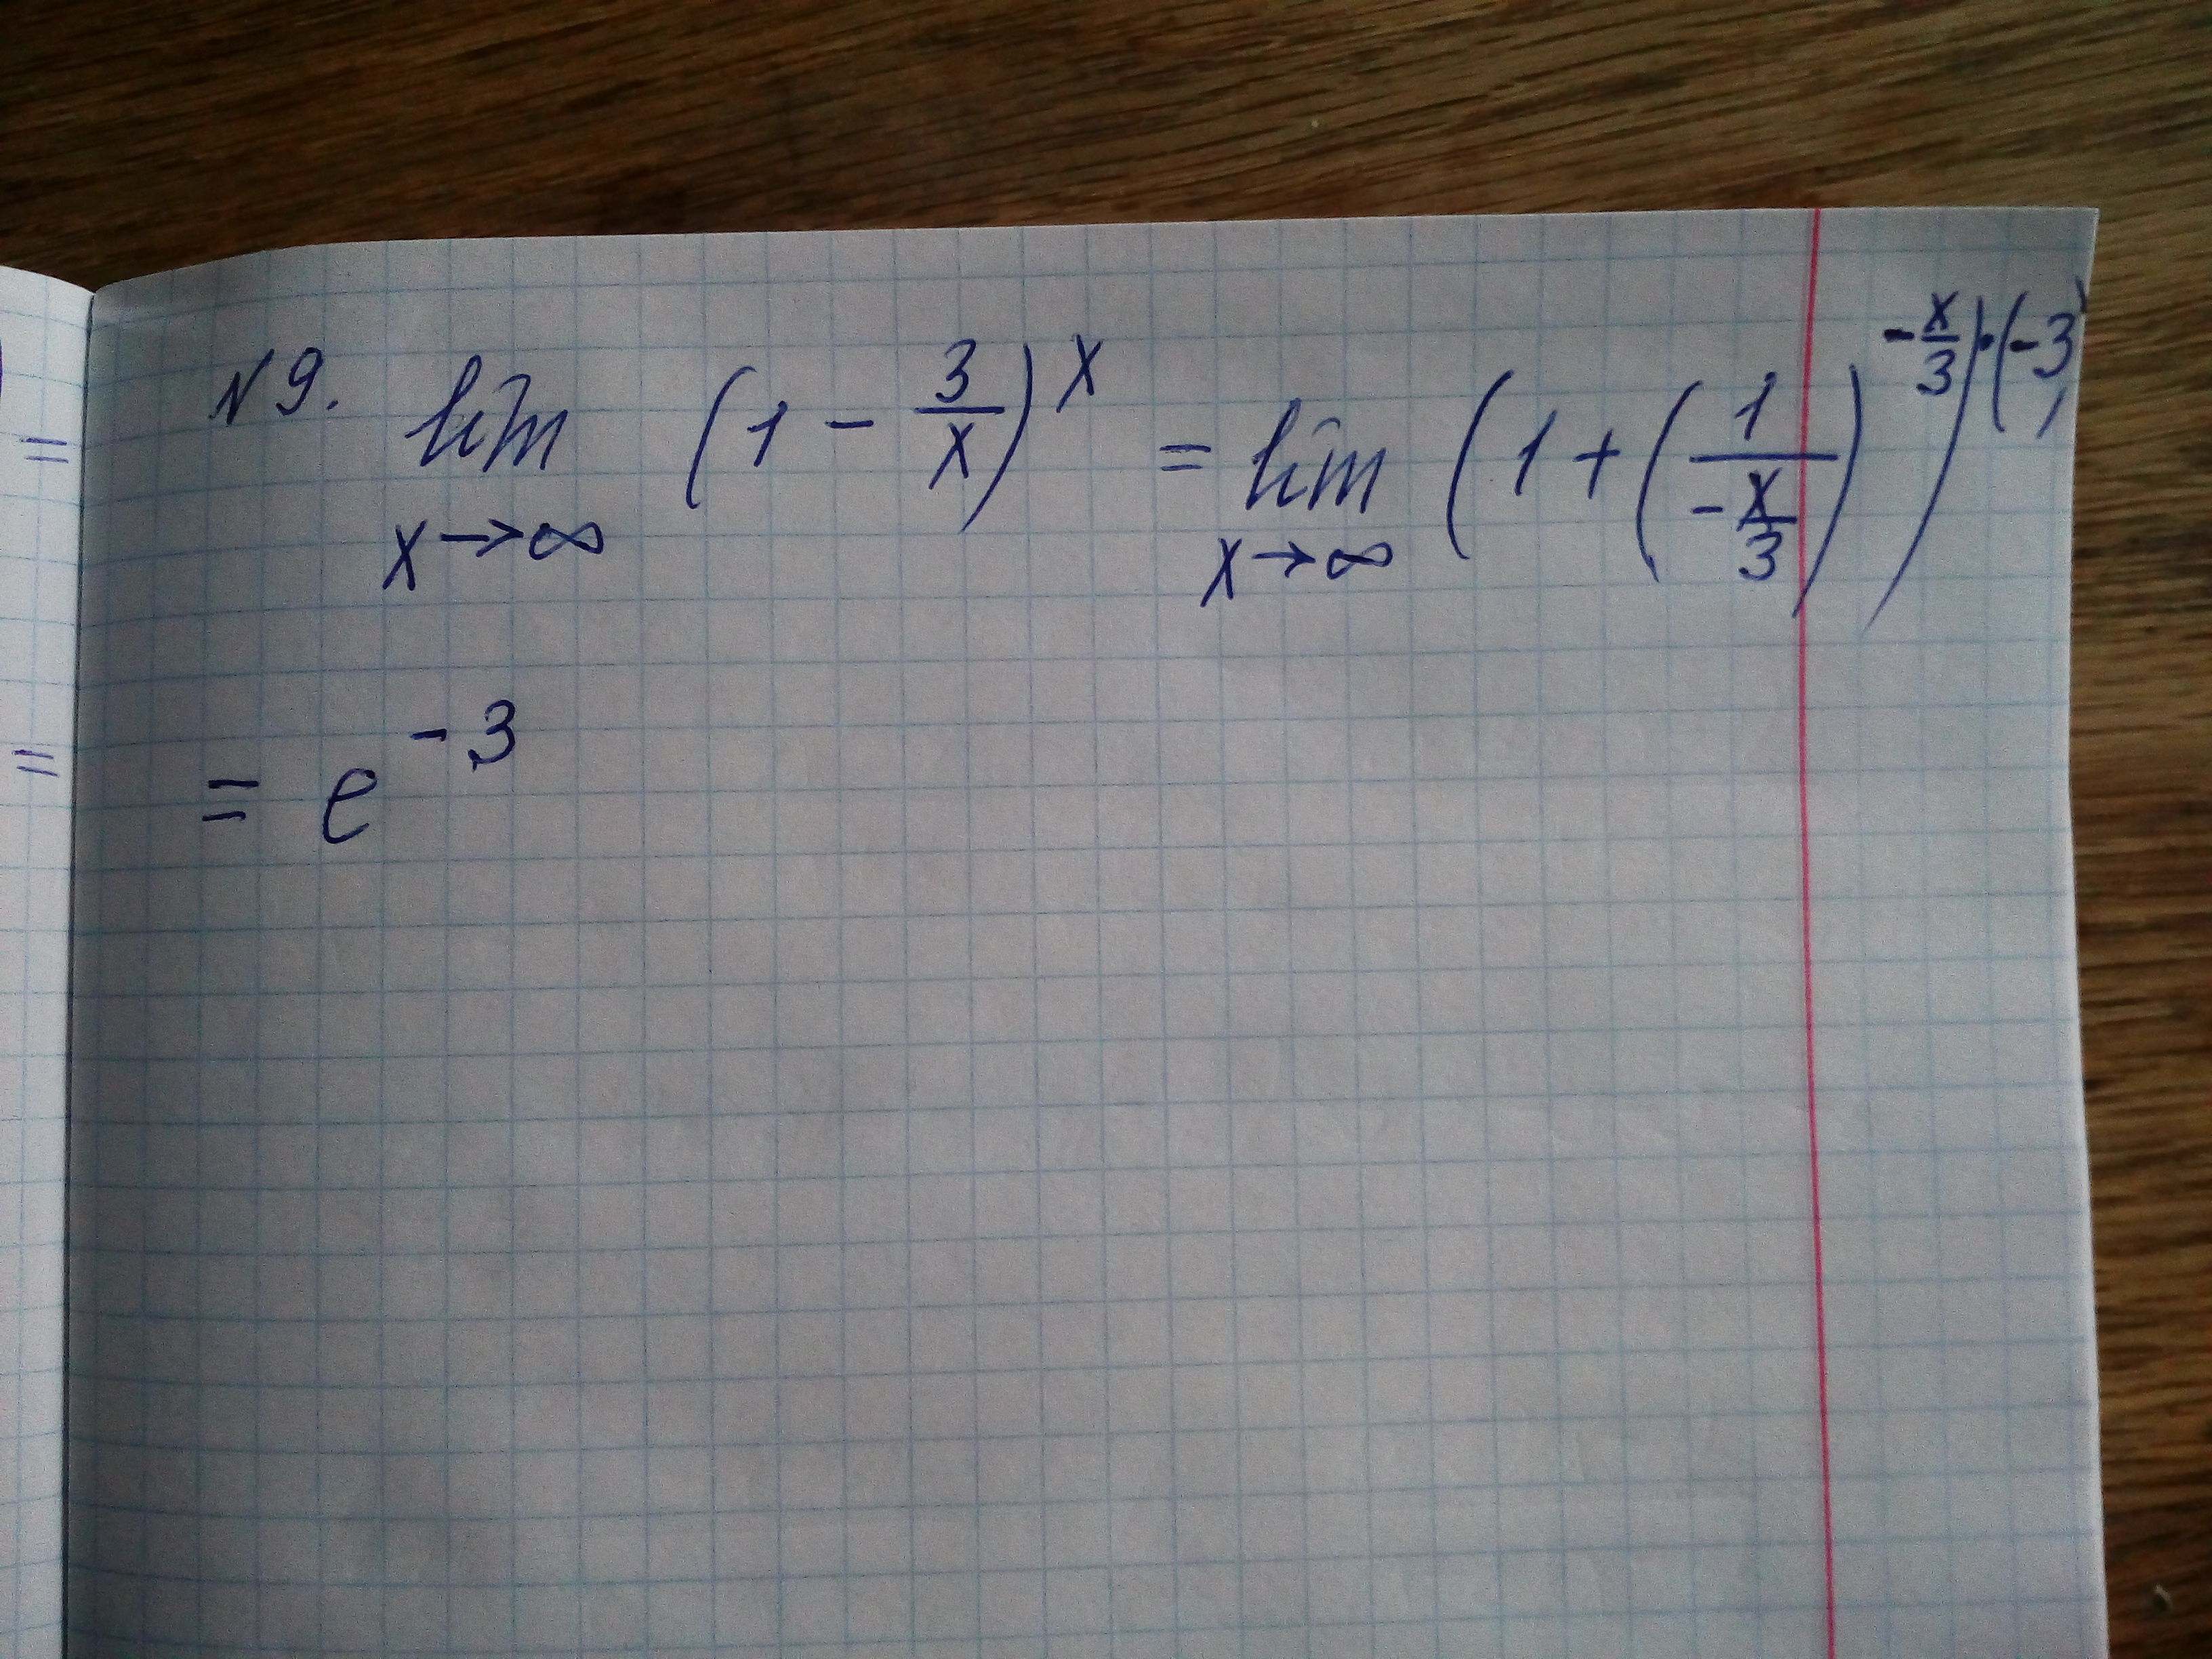 №9. lim (1 - 3/x)^x = lim (1 + (1/(-x/3))^(-x/3))·(-3)
x→∞ x→∞
= e^-3
=
=